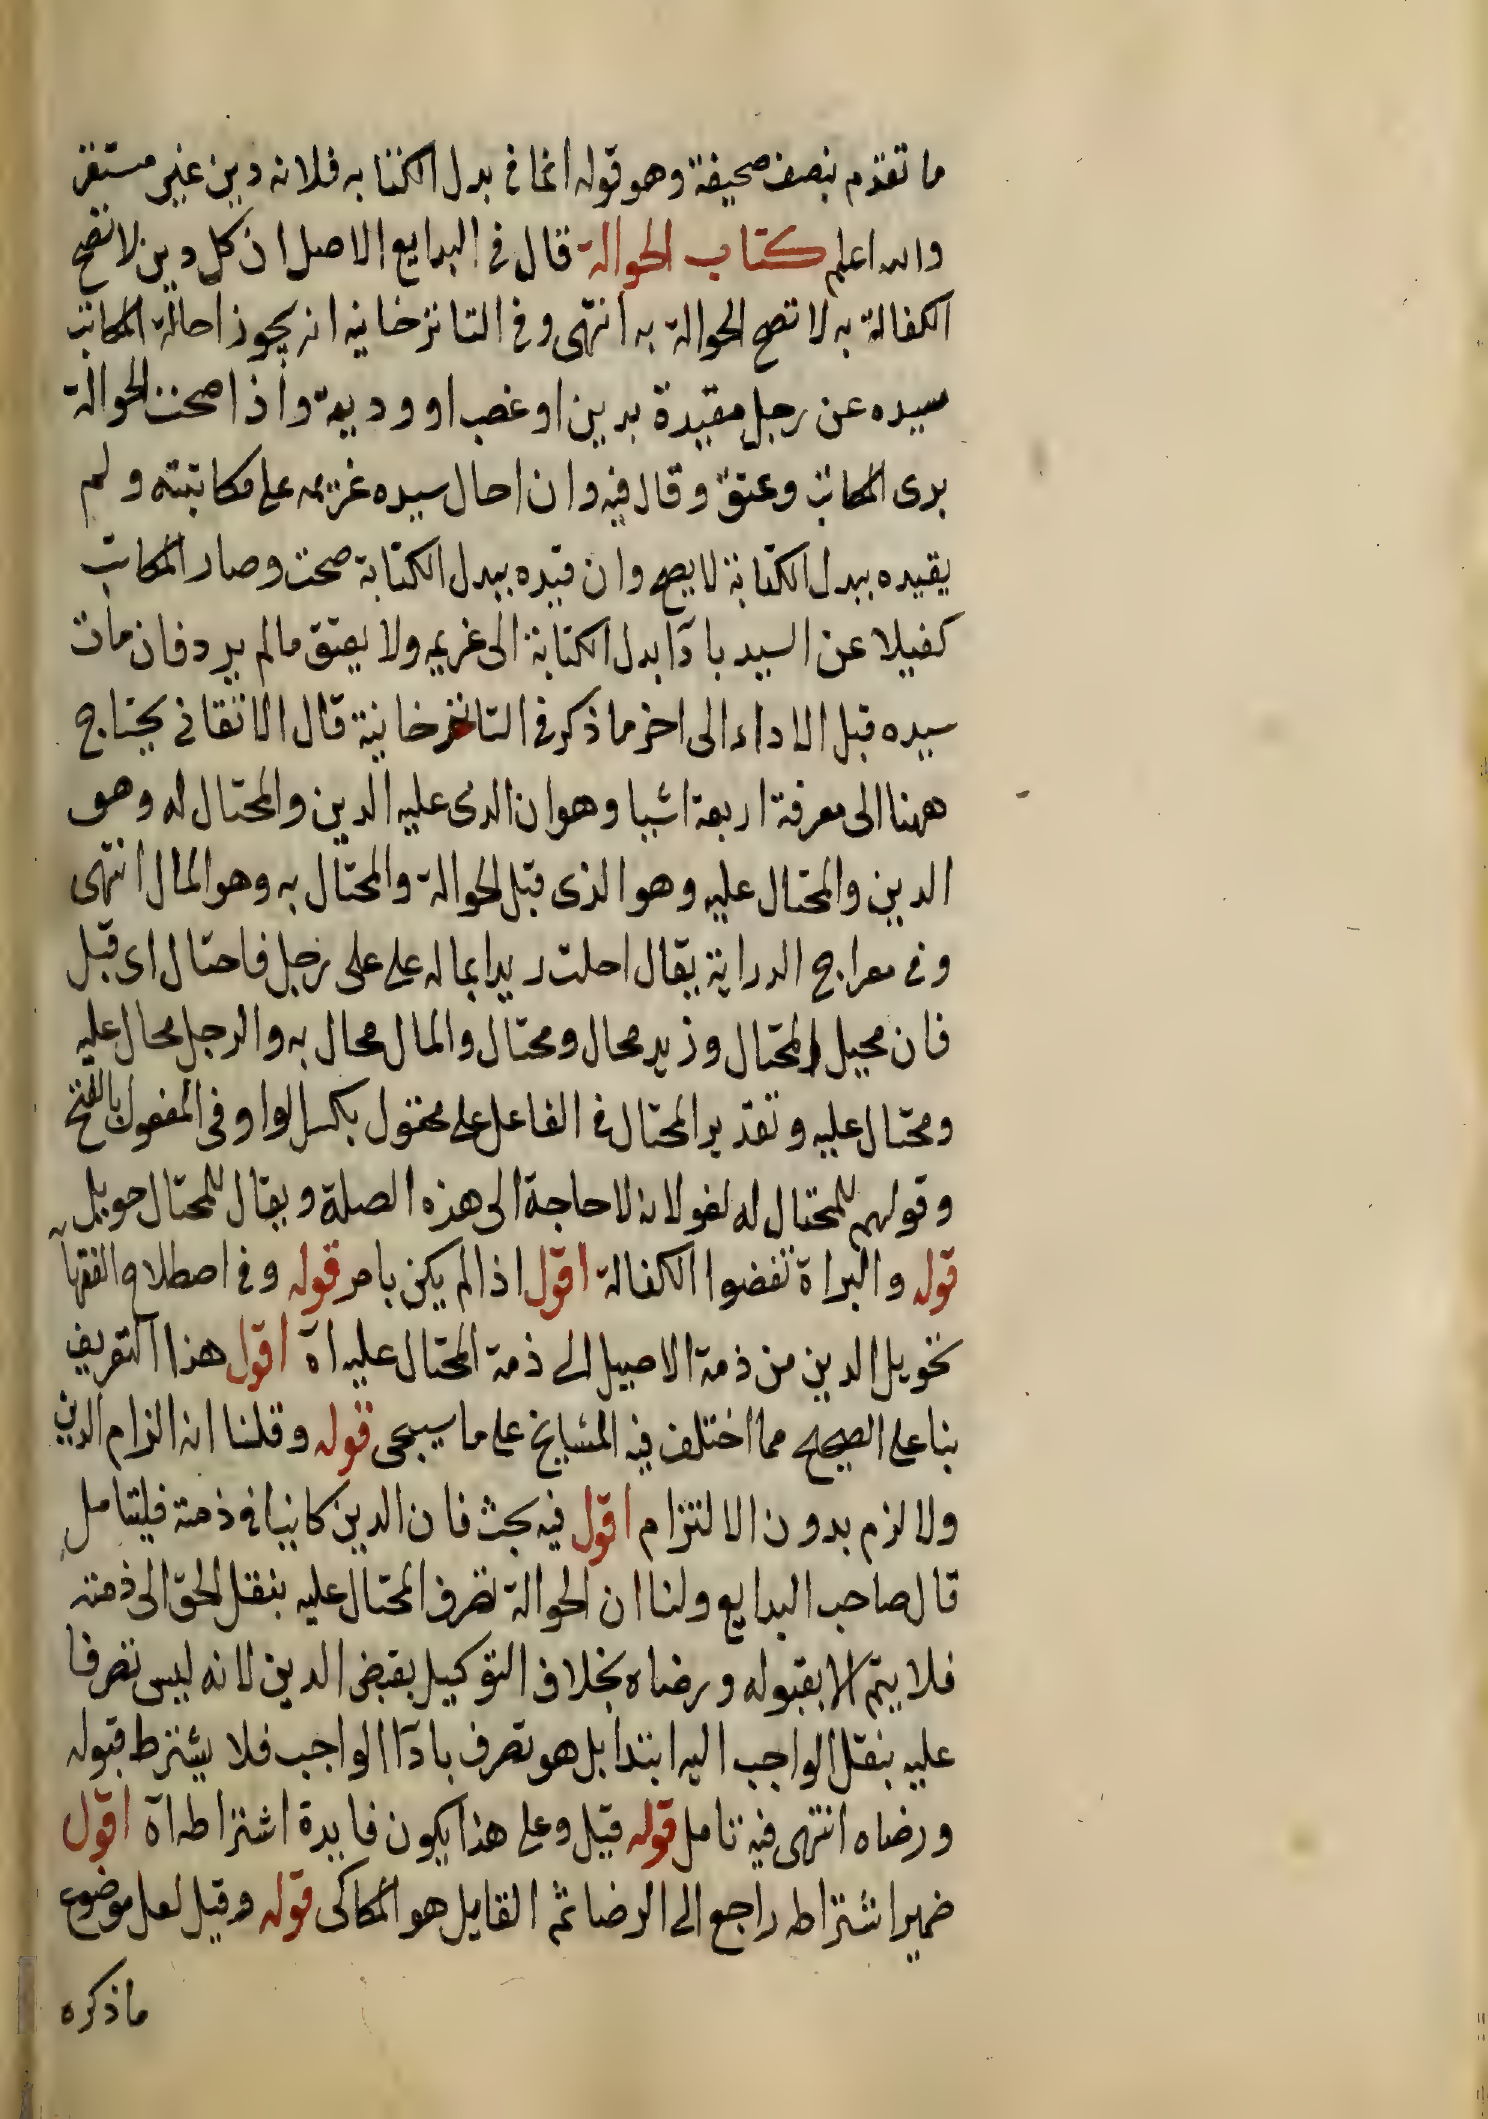 ما تقدم بنصف صحيفة وهو قوله انما في بدل الكتابه فلانه دين غير مستقر
والله اعلم كتاب الحوالة قال في البدايع الاصل ان كل دين لا تصح
الكفالة به لا تصح الحوالة به انتهى وفي التاترخانيه انه يجوز احالة المكاتب
سيده عن رجل مقيدة بدين او غصب او وديعة واذا صحت الحوالة
برى المكاتب وعتق وقال فيه وان احال سيده غريمه على مكاتبته ولم
يقيده ببدل الكتابة لا يصح وان قيده ببدل الكتابة صحت وصار المكاتب
كفيلا عن السيد بادآ بدل الكتابة الى غريمه ولا يعتق مالم يرد فان مات
سيده قبل الاداء الى اخر ما ذكر في التاتخرخانية قال الاتقاني يحتاج
ههنا الى معرفة اربعة اشيا وهو ان الدى عليه الدين والمحتال له وهو
الدين والمحتال عليه وهو الذى قبل الحوالة والمحتال به وهو المال انتهى
وفي معراج الدراية يقال احلت زيدا بماله على على رجل فاحتال اى قبل
فان محيل المحتال وزيد محال ومحتال والمال محال به والرجل محال عليه
ومحتال عليه وتقدير المحتال في الفاعل على محتول بكسر الواو وفى المفعول بالفتح
وقولهم للمحتال له لغو لانه لا حاجة الى هذه الصلة ويقال للمحتال حويل
قوله والبراة تفضوا الكفالة اقول اذا لم يكن بامر قوله وفي اصطلاح الفقها
تحويل الدين من ذمة الاصيل الى ذمة المحتال عليه اه اقول هذا التعريف
بنا على الصحيح مما اختلف فيه المشايخ على ما سيجى قوله وقلنا انه الزام الدين
ولا لزم بدون الالتزام اقول فيه بحث فان الدين كان ثابتا في ذمته فليتامل
قال صاحب البدايع ولنا ان الحوالة تصرف المحتال عليه بنقل الحق الى ذمته
فلا يتم الا بقبوله ورضاه بخلاف التوكيل بقبض الدين لانه ليس تصرفا
عليه بنقل الواجب اليه ابتدا بل هو تصرف بادآ الواجب فلا يشترط قبوله
ورضاه انتهى فيه تامل قوله قيل وعلى هذا يكون فايدة اشتراطه اه اقول
ضمير اشتراطه راجع الى الرضا ثم القايل هو الكاكى قوله وقيل لعل موضوع
ماذكره